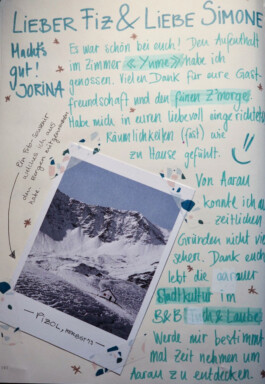 LIEBER FIZ & LIEBE SIMONE
Es war schön bei euch! Den Aufenthalt
im Zimmer « Yvone » habe ich
genossen. Vielen Dank für eure Gast-
freundschaft und den feinen Z'morge.
Habe mich in euren liebevoll eingerichteten
Räumlichkeiten (fast) wie
zu Hause gefühlt.
Von Aarau
konnte ich aus
zeitlichen
Gründen nicht viel
sehen. Dank euch
lebt die aarauer
Stadtkultur im
B&B Tisch & Laube!
Werde mir bestimmt
mal Zeit nehmen um
Aarau zu entdecken.
Macht's
gut!
JORINA
Ein Bild
welches ich aus
den Bergen mitgenommen
habe
PIZOL,